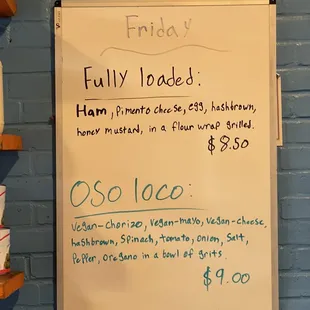 Friday
Fully loaded:
Ham, Pimento cheese, egg, hashbrown,
honey mustard, in a flour wrap grilled.
$8.50
OSO loco:
Vegan-chorizo, Vegan-mayo, Vegan-cheese,
hashbrown, Spinach, tomato, onion, Salt,
Pepper, Oregano in a bowl of grits.
$9.00